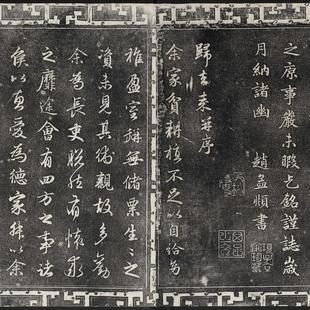 之原事嚴未暇乞銘謹誌歲
月納諸幽 趙孟頫書
歸去來并序
余家貧耕植不足以自給幼
稚盈室缾無儲粟生生之
資未見其術親故多勸
余為長吏脫然有懷求
之靡途會有四方之事諸
侯以惠愛為德家叔以余